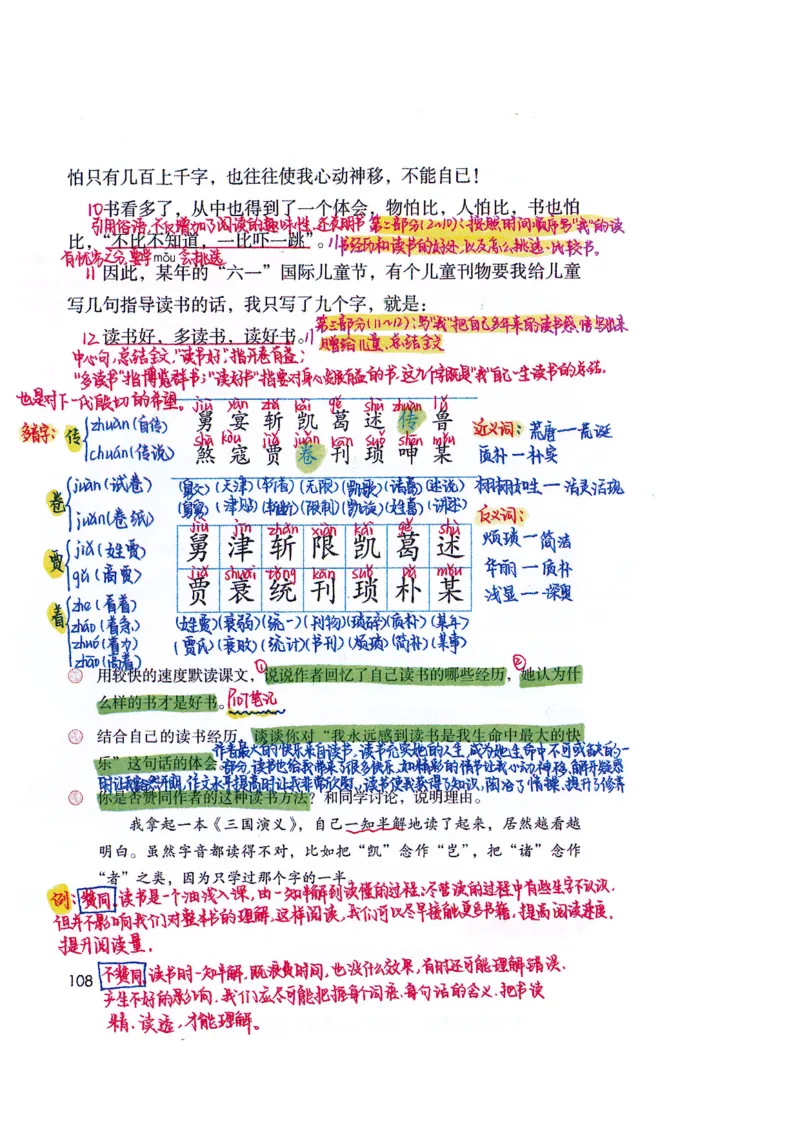 怕只有几百上千字，也往往使我心动神移，不能自已！
10书看多了，从中也得到了一个体会，物怕比，人怕比，书也怕
引用俗语，不仅增加了阅读的趣味性，还表明书
第二部分(2~10)：按照时间顺序写“我”的读
比，“不比不知道，一比吓一跳”。//
书经历和读书的好处，以及怎么挑选、比较书。
有优劣之分，要学会挑选
mǒu
11因此，某年的“六一”国际儿童节，有个儿童刊物要我给儿童
写几句指导读书的话，我只写了九个字，就是：
第三部分(11~12)：写“我”把自己多年来的读书感悟写出来
12 读书好，多读书，读好书。//
赠给儿童，总结全文
中心句，总结全文，“读书好”指开卷有益；
“多读书”指博览群书；“读好书”指要对身心发展有益的书。这九个字既是“我”自己一生读书的总结，
也是对下一代殷切的希望。
jiù yàn zhǎ kǎi gě shù zhuàn lǔ
舅 宴 斩 凯 葛 述 传 鲁
shà kòu jiǎ juàn kān suǒ shēn mǒu
煞 寇 贾 卷 刊 琐 呻 某
多音字：传
zhuàn(自传)
chuán(传说)
近义词：荒唐—荒诞
质朴—朴实
栩栩如生—活灵活现
卷
juàn(试卷)
juǎn(卷纸)
(舅父)(天津)(斩首)(无限)(凯歌)(诸葛)(述说)
(舅舅)(津贴)(斩断)(限制)(凯旋)(姓葛)(讲述)
反义词：
烦琐—简洁
华丽—质朴
浅显—深奥
jiù jīn zhǎn xiàn kǎi gě shù
舅 津 斩 限 凯 葛 述
jiǎ shuāi tǒng kān suǒ pǔ mǒu
贾 衰 统 刊 琐 朴 某
贾
jiǎ(姓贾)
gǔ(商贾)
着
zhe(看着)
zháo(着急)
zhuó(着力)
zhāo(高着)
(姓贾)(衰弱)(统一)(刊物)(琐碎)(质朴)(某年)
(贾氏)(衰败)(统计)(书刊)(烦琐)(简朴)(某事)
用较快的速度默读课文，①说说作者回忆了自己读书的哪些经历，②她认为什
么样的书才是好书。P107笔记
结合自己的读书经历，谈谈你对“我永远感到读书是我生命中最大的快
乐”这句话的体会。
作者最大的快乐来自读书，读书充实她的人生，成为她生命中不可或缺的一
部分，读书也给我带来了很多快乐，如精彩的情节让我心动神移，解开疑惑
时让我豁然开朗，作文水平提高时让我非常欣慰，读书使我获得了知识，陶冶了情操，提升了修养
你是否赞同作者的这种读书方法？和同学讨论，说明理由。
我拿起一本《三国演义》，自己一知半解地读了起来，居然越看越
明白。虽然字音都读得不对，比如把“凯”念作“岂”，把“诸”念作
“者”之类，因为只学过那个字的一半
例：赞同，读书是一个由浅入深，由一知半解到读懂的过程，尽管读的过程中有些生字不认识，
但并不影响我们对整本书的理解。这样阅读，我们可以尽早接触更多书籍，提高阅读速度，
提升阅读量。
108
不赞同，读书时一知半解，既浪费时间，也没什么效果，有时还可能理解错误，
产生不好的影响，我们应尽可能把握每个词语、每句话的含义，把书读
精、读透，才能理解。